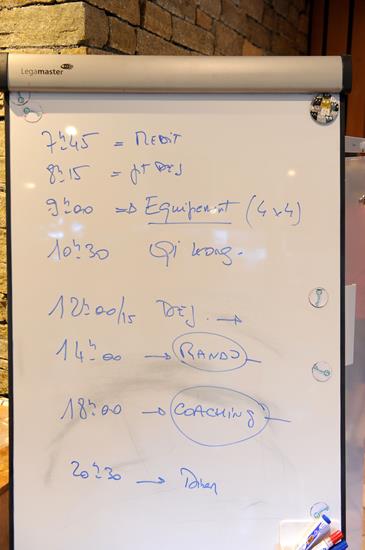 Legamaster
7h45 = MEDIT
8h15 = pt DEJ
9h00 => Equipement (4x4)
10h30 Qi kong.
12h00/15 DEJ. →
14h00 → RANDO
18h00 → COACHING
20h30 → Diner